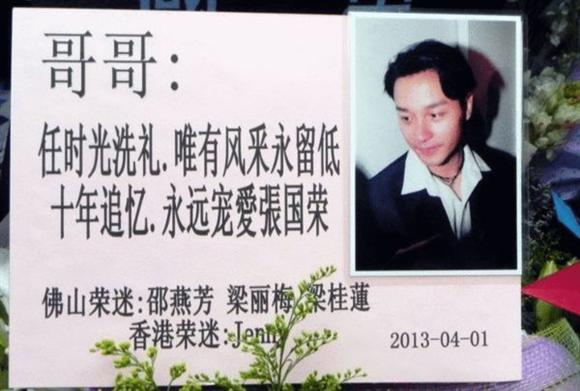 哥哥:
任时光洗礼.唯有风采永留低
十年追忆.永远宠愛張国荣
佛山荣迷:邵燕芳 梁丽梅 梁桂蓮
香港荣迷:Jenn
2013-04-01